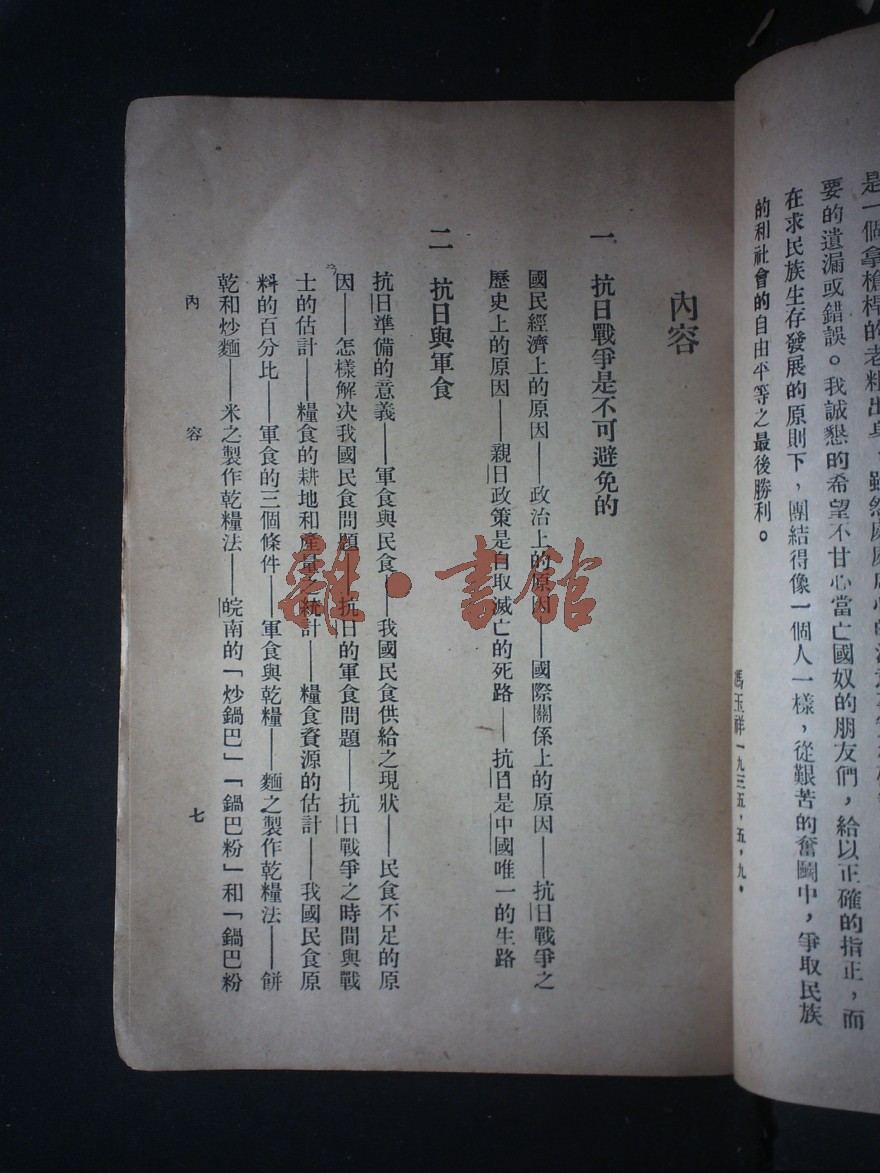 要的遺漏或錯誤。我誠懇的希望不甘心當亡國奴的朋友們，給以正確的指正，而
在求民族生存發展的原則下，團結得像一個人一樣，從艱苦的奮鬭中，爭取民族
的和社會的自由平等之最後勝利。
馮玉祥一九三五・五・九・
內容
一 抗日戰爭是不可避免的
國民經濟上的原因——政治上的原因——國際關係上的原因——抗日戰爭之
歷史上的原因——親日政策是自取滅亡的死路——抗日是中國唯一的生路
二 抗日與軍食
抗日準備的意義——軍食與民食——我國民食供給之現狀——民食不足的原
因——怎樣解決我國民食問題——抗日的軍食問題——抗日戰爭之時間與戰
士的估計——糧食的耕地和產量之統計——糧食資源的估計——我國民食原
料的百分比——軍食的三個條件——軍食與乾糧——麵之製作乾糧法——餅
乾和炒麵——米之製作乾糧法——皖南的「炒鍋巴」「鍋巴粉」和「鍋巴粉
內 容
七
雜・書館